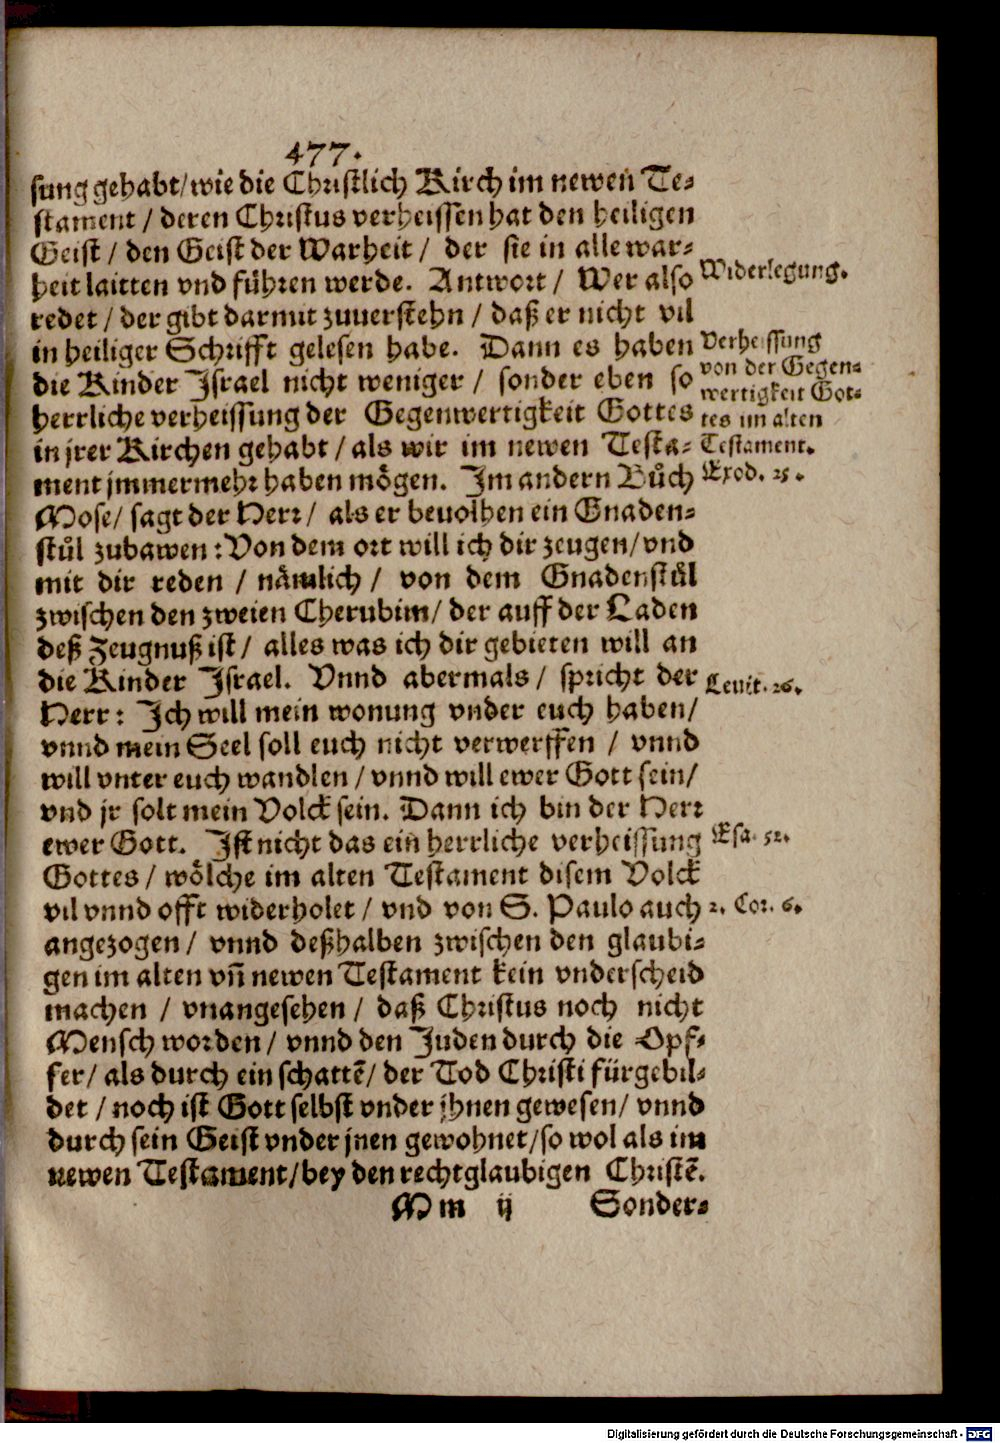 477.
sung gehabt/ wie die Christlich Kirch im newen Te-
stament / deren Christus verheissen hat den heiligen
Geist / den Geist der Warheit / der sie in alle war-
heit laitten vnd führen werde. Antwort / Wer also
Widerlegung.
redet / der gibt darmit zuuerstehn / daß er nicht vil
in heiliger Schrifft gelesen habe. Dann es haben
Verheissung
die Kinder Israel nicht weniger / sonder eben so
von der Gegen-
wertigkeit Got-
herrliche verheissung der Gegenwertigkeit Gottes
tes im alten
in jrer Kirchen gehabt / als wir im newen Testa-
Testament.
ment jmmermehr haben mögen. Im andern Bůch
Exod. 25.
Mose/ sagt der Herr/ als er beuolhen ein Gnaden-
stůl zubawen: Von dem ort will ich dir zeugen/ vnd
mit dir reden / nämlich / von dem Gnadenstůl
zwischen den zweien Cherubim/ der auff der Laden
deß Zeugnuß ist/ alles was ich dir gebieten will an
die Kinder Israel. Vnnd abermals / spricht der
Leuit. 26.
Herr: Ich will mein wonung vnder euch haben/
vnnd mein Seel soll euch nicht verwerffen / vnnd
will vnter euch wandlen / vnnd will ewer Gott sein/
vnd jr solt mein Volck sein. Dann ich bin der Herr
ewer Gott. Ist nicht das ein herrliche verheissung
Esa. 52.
Gottes / wölche im alten Testament disem Volck
vil vnnd offt widerholet / vnd von S. Paulo auch
2. Cor. 6.
angezogen / vnnd deßhalben zwischen den glaubi-
gen im alten vn̄ newen Testament kein vnderscheid
machen / vnangesehen / daß Christus noch nicht
Mensch worden / vnnd den Juden durch die Opf-
fer/ als durch ein schattē/ der Tod Christi fürgebil-
det / noch ist Gott selbst vnder jhnen gewesen/ vnnd
durch sein Geist vnder jnen gewohnet/ so wol als im
newen Testament/ bey den rechtglaubigen Christē.
Mm ij Sonder-
Digitalisierung gefördert durch die Deutsche Forschungsgemeinschaft - DFG